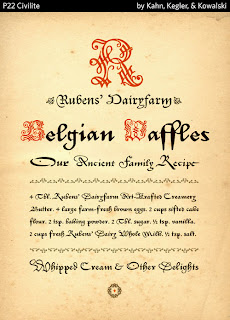 P22 Civilite
by Kahn, Kegler, & Kowalski
R
Rubens' Dairyfarm
Belgian Waffles
Our Ancient Family Recipe
4 Tbl. Rubens' Dairyfarm Art-Krafted Creamery
Butter. 4 large farm-fresh brown eggs. 2 cups sifted cake
flour. 2 tsp. baking powder. 2 Tbl. sugar. ½ tsp. vanilla.
2 cups fresh Rubens' Dairy Whole Milk. ½ tsp. salt.
Whipped Cream & Other Delights